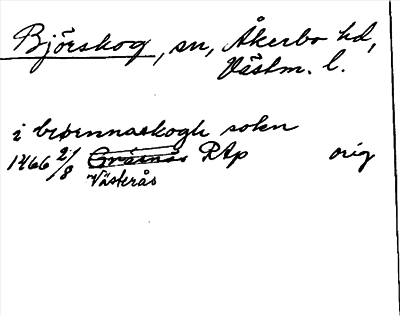 Björskog, sn, Åkerbo hd,
Västm. l.
i biørnnaskogh sokn
1466 2/8 Gränsnäs RAp orig
Västerås